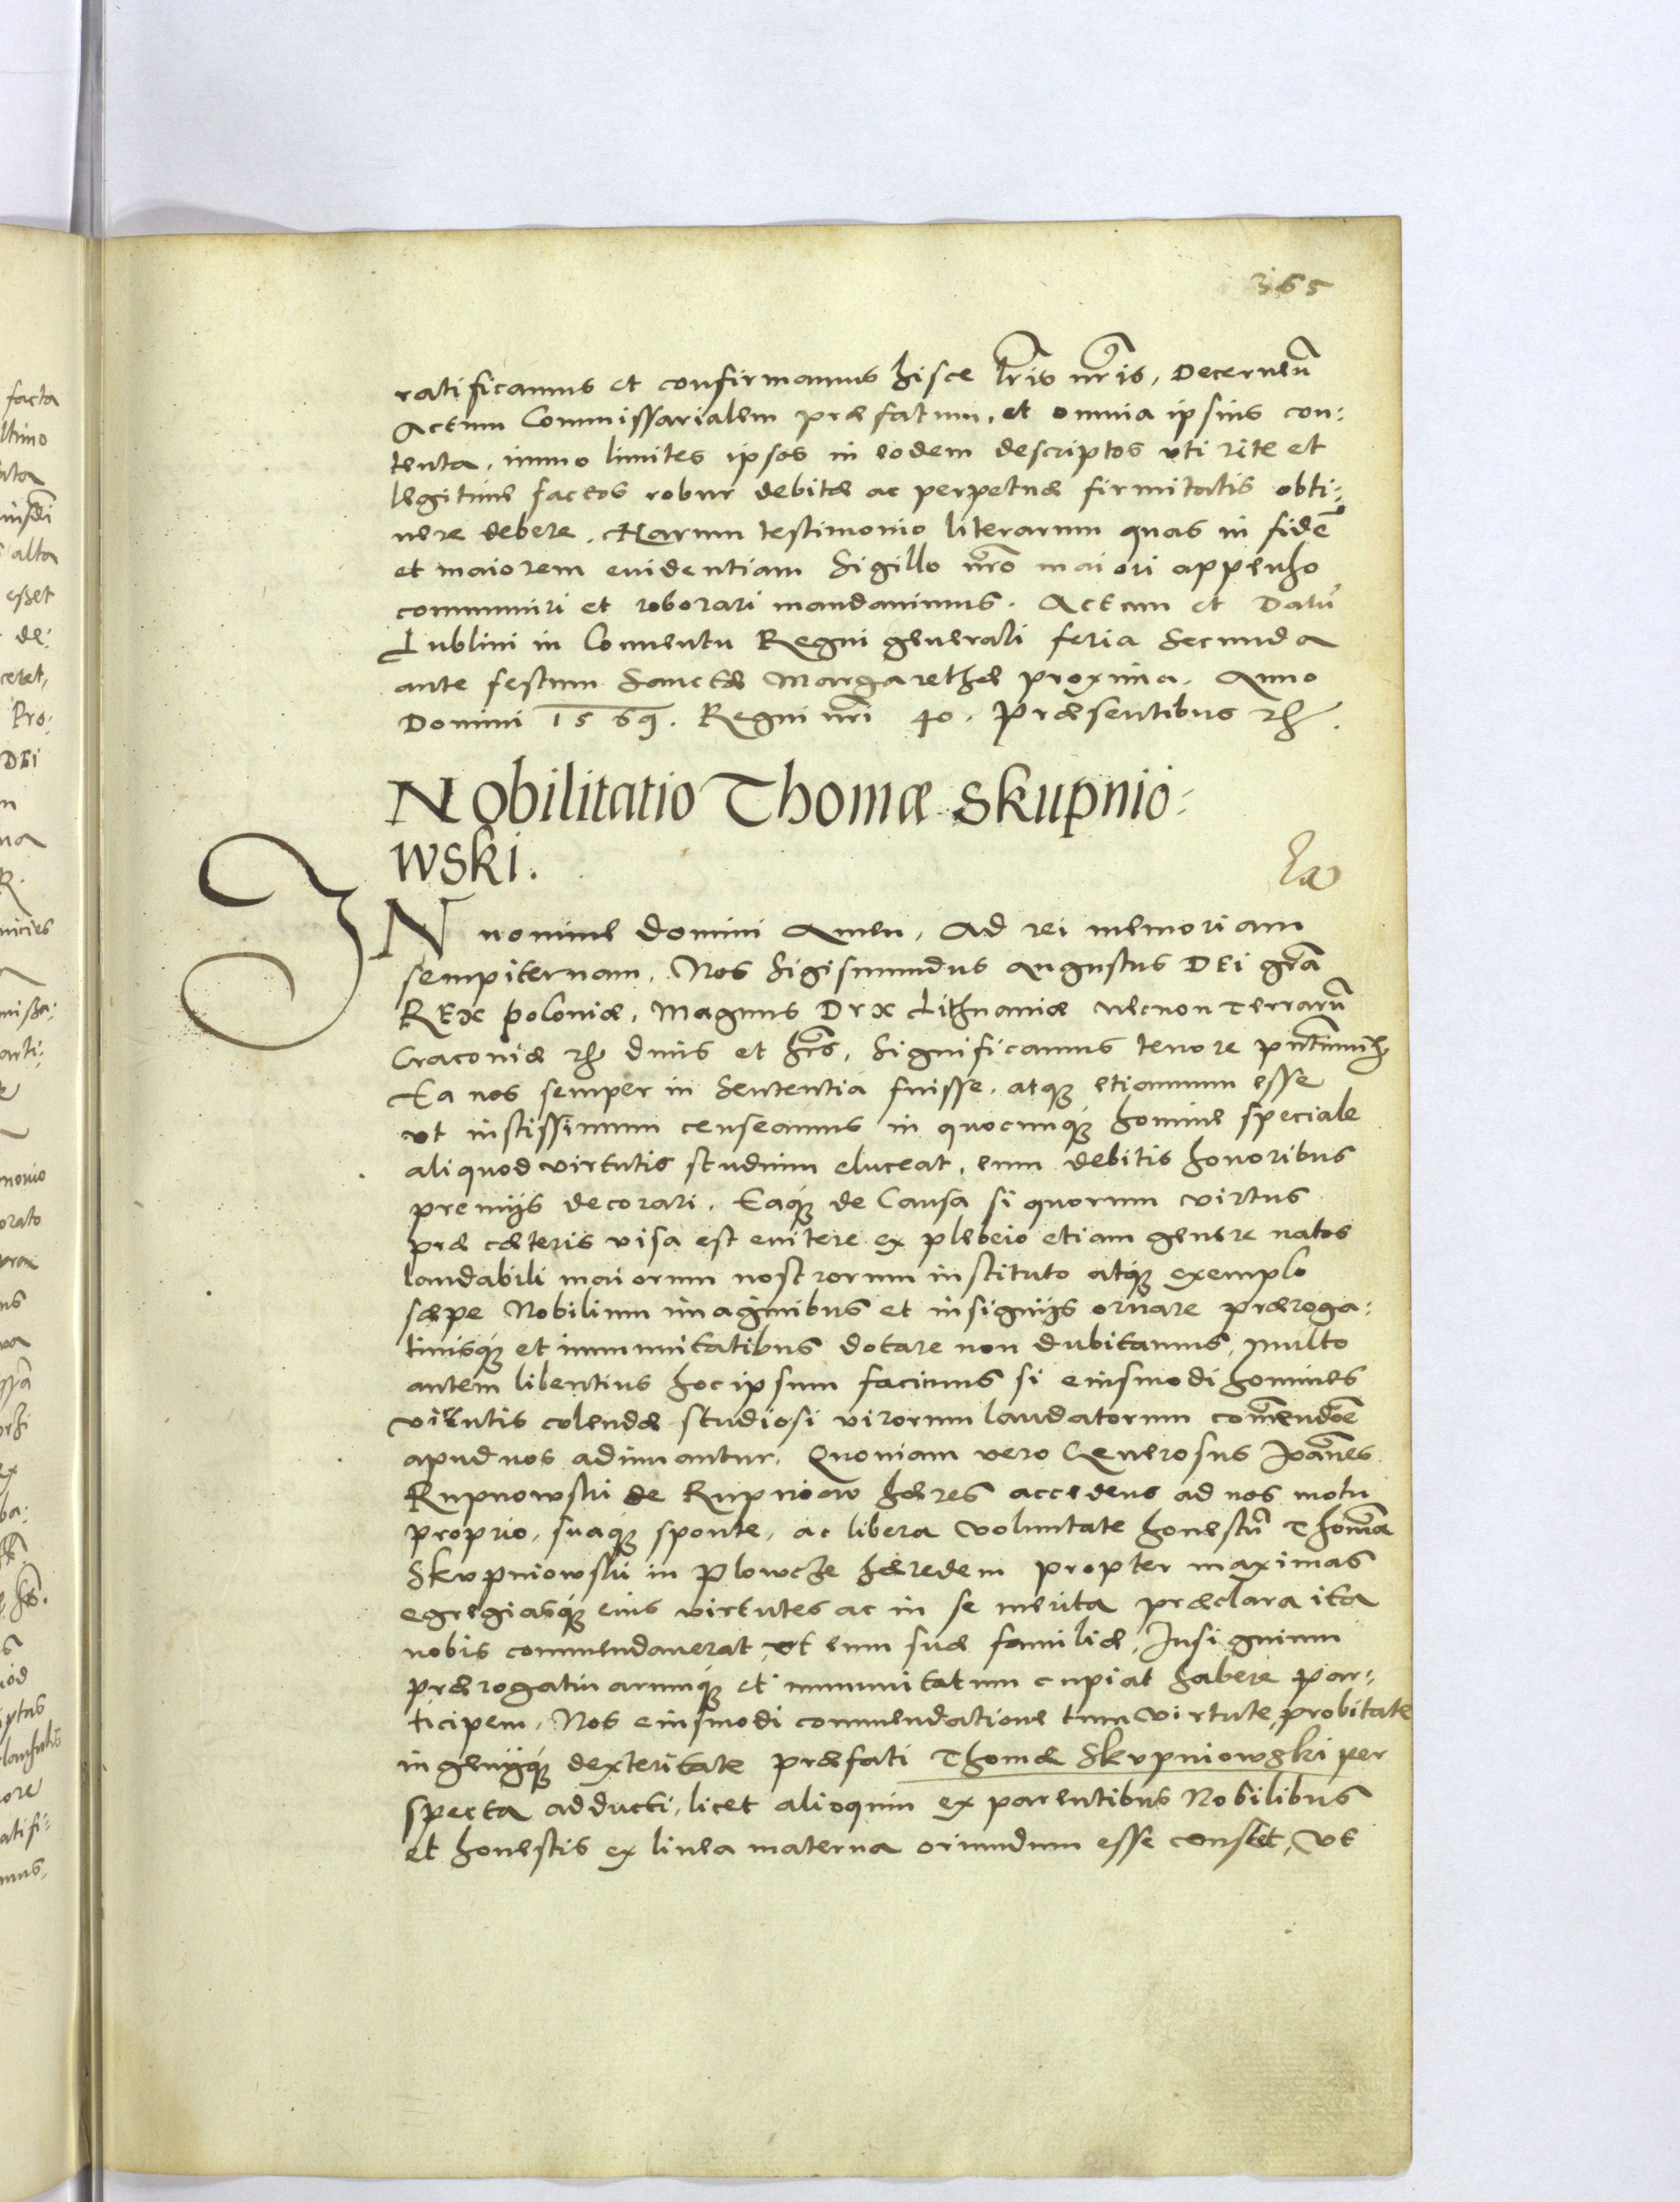 365
ratificamus et confirmamus hisce lris nris, Decernen
Actum Commissarialem præfatum, et omnia ipsius con:
tenta, immo limites ipsos in eodem descriptos uti rite et
legitime factos robur debitæ ac perpetuæ firmitatis obti:
nere debere. Harum testimonio literarum quas in fidē
et maiorem euidentiam Sigillo nro maiori appenso
communiri et roborari mandauimus. Actum et Datū
Lublini in Conuentu Regni generali feria Secunda
ante festum Sanctæ Margarethæ proxima. Anno
Domini 1569. Regni nri 40. Præsentibus
Nobilitatio Thomæ Skupnio:
wski.
IN nomine Domini Amen, Ad rei memoriam
sempiternam. Nos Sigismundus Augustus DEI gra
REX Poloniæ, Magnus Dux Lithuaniæ necnon Terrarū
Cracouiæ dnus et hres, Significamus tenore pntium
Ea nos semper in Sententia fuisse, atq etiamnum esse
ut iustissimum censeamus in quocunq homine speciale
aliquod virtutis studium eluceat, eum debitis honoribus
premijs decorari. Eaq de Causa si quorum virtus
præ cæteris visa est enitere ex plebeio etiam genere natos
laudabili maiorum nostrorum instituto atq exemplo
sæpe Nobilium imaginibus et insignijs ornare præroga:
tiuisq et immunitatibus dotare non dubitamus, multo
autem libentius hoc ipsum facimus si eiusmodi homines
virtutis colendæ studiosi virorum laudatorum comendoe
apud nos adiuuantur. Quoniam vero Generosus Ioannes
Rupnowski de Rupniow hæres accedens ad nos motu
proprio, suaq sponte, ac libera voluntate honestū Thomā
Skupniowski in Plowcze hæredem propter maximas
egregiasq eius virtutes ac in se merita præclara ita
nobis commendauerat, ut eum suæ familiæ, Insignium
prærogatiuarumq et immunitatum cupiat habere par:
ticipem. Nos eiusmodi commendatione tum virtute, probitate
ingenijq dexteritate præfati Thomæ Skupniowski per
specta adducti, licet alioquin ex parentibus Nobilibus
et honestis ex linea materna oriundum esse constet, ut